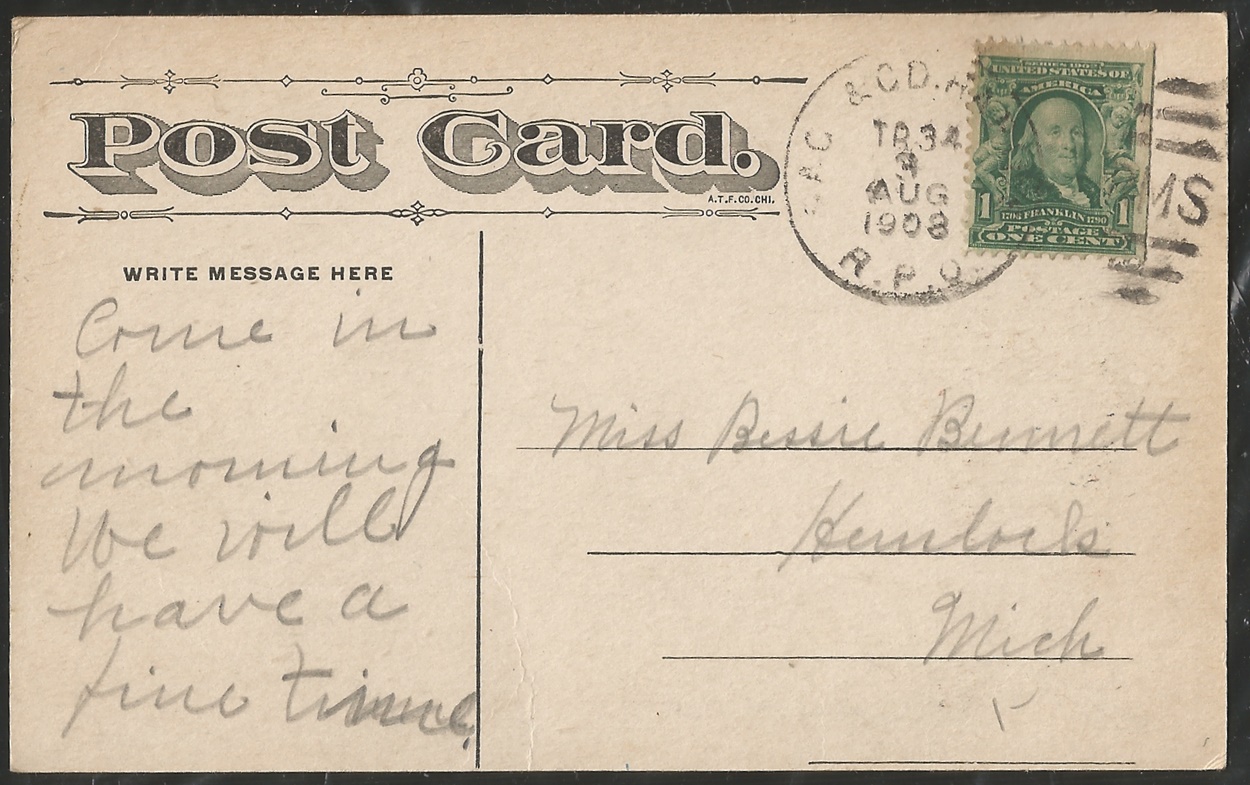 Post Card.
A.T.F.CO.CHI.
WRITE MESSAGE HERE
Come in
the
morning
We will
have a
fine time.
& G.D.
TR 34
3
AUG
1908
R.P.O.
MS
SERIES 1902
UNITED STATES OF
AMERICA
1 1706 FRANKLIN 1790 1
POSTAGE
ONE CENT
Miss Bessie Bennett
Hemlock
Mich